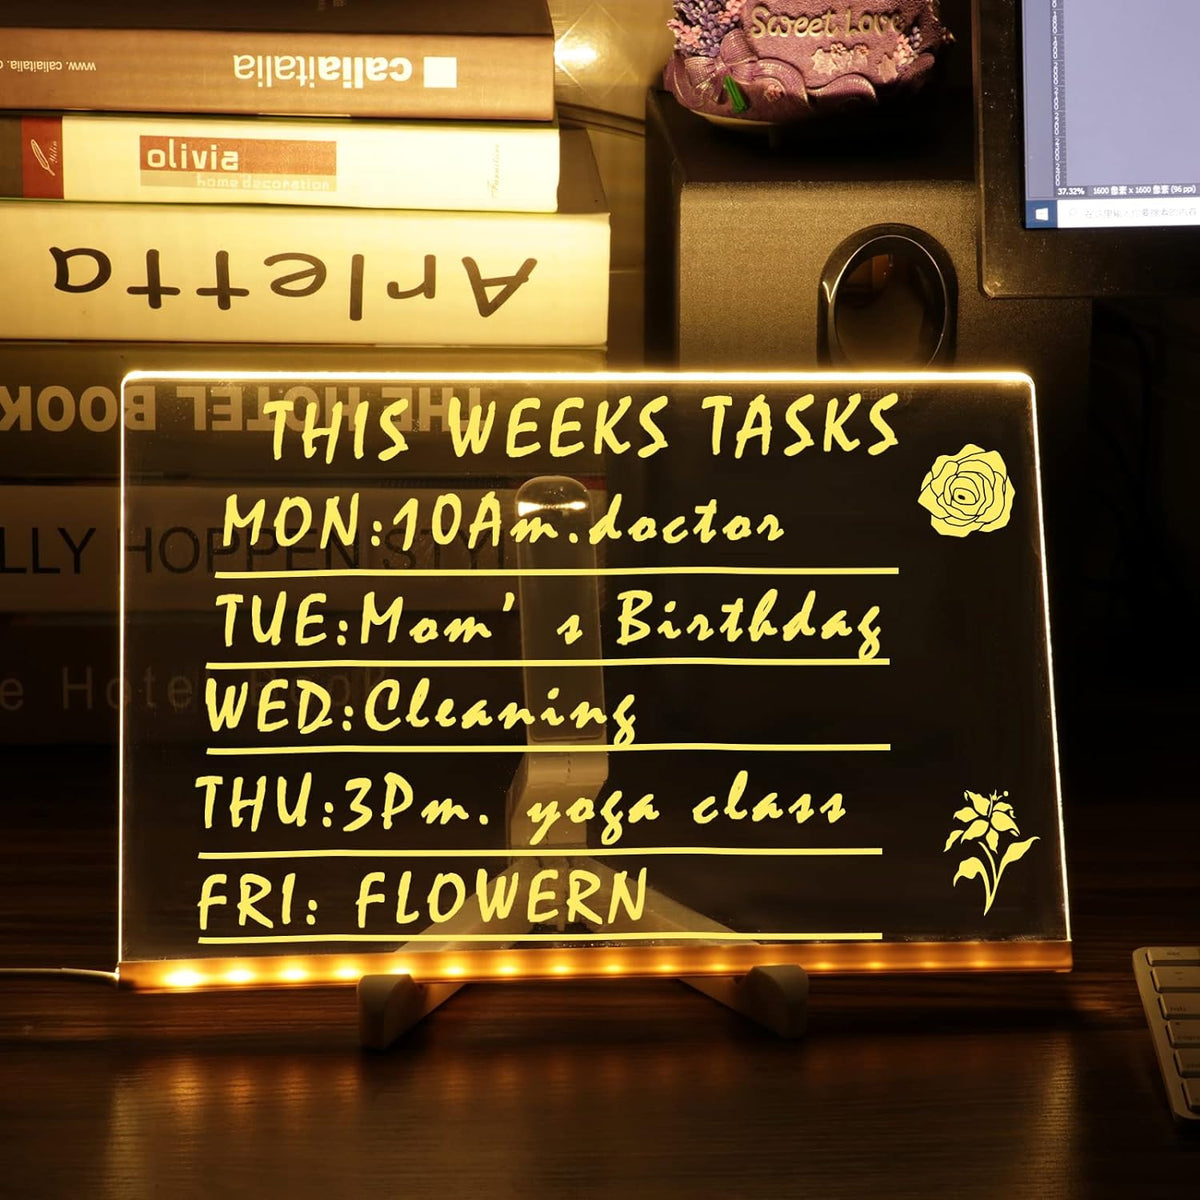 www.caliaitalia.c
caliaitalia
olivia
home decoration
Arletta
THE HOTEL BOOK
LLY HOPPEN STY
e Hotel Book
Sweet Love
37.32%
1600 像素 x 1600 像素 (96 ppi)
在这里输入你要搜索的内容
THIS WEEKS TASKS
MON:10Am.doctor
TUE:Mom's Birthdag
WED:Cleaning
THU:3Pm. yoga class
FRI: FLOWERN